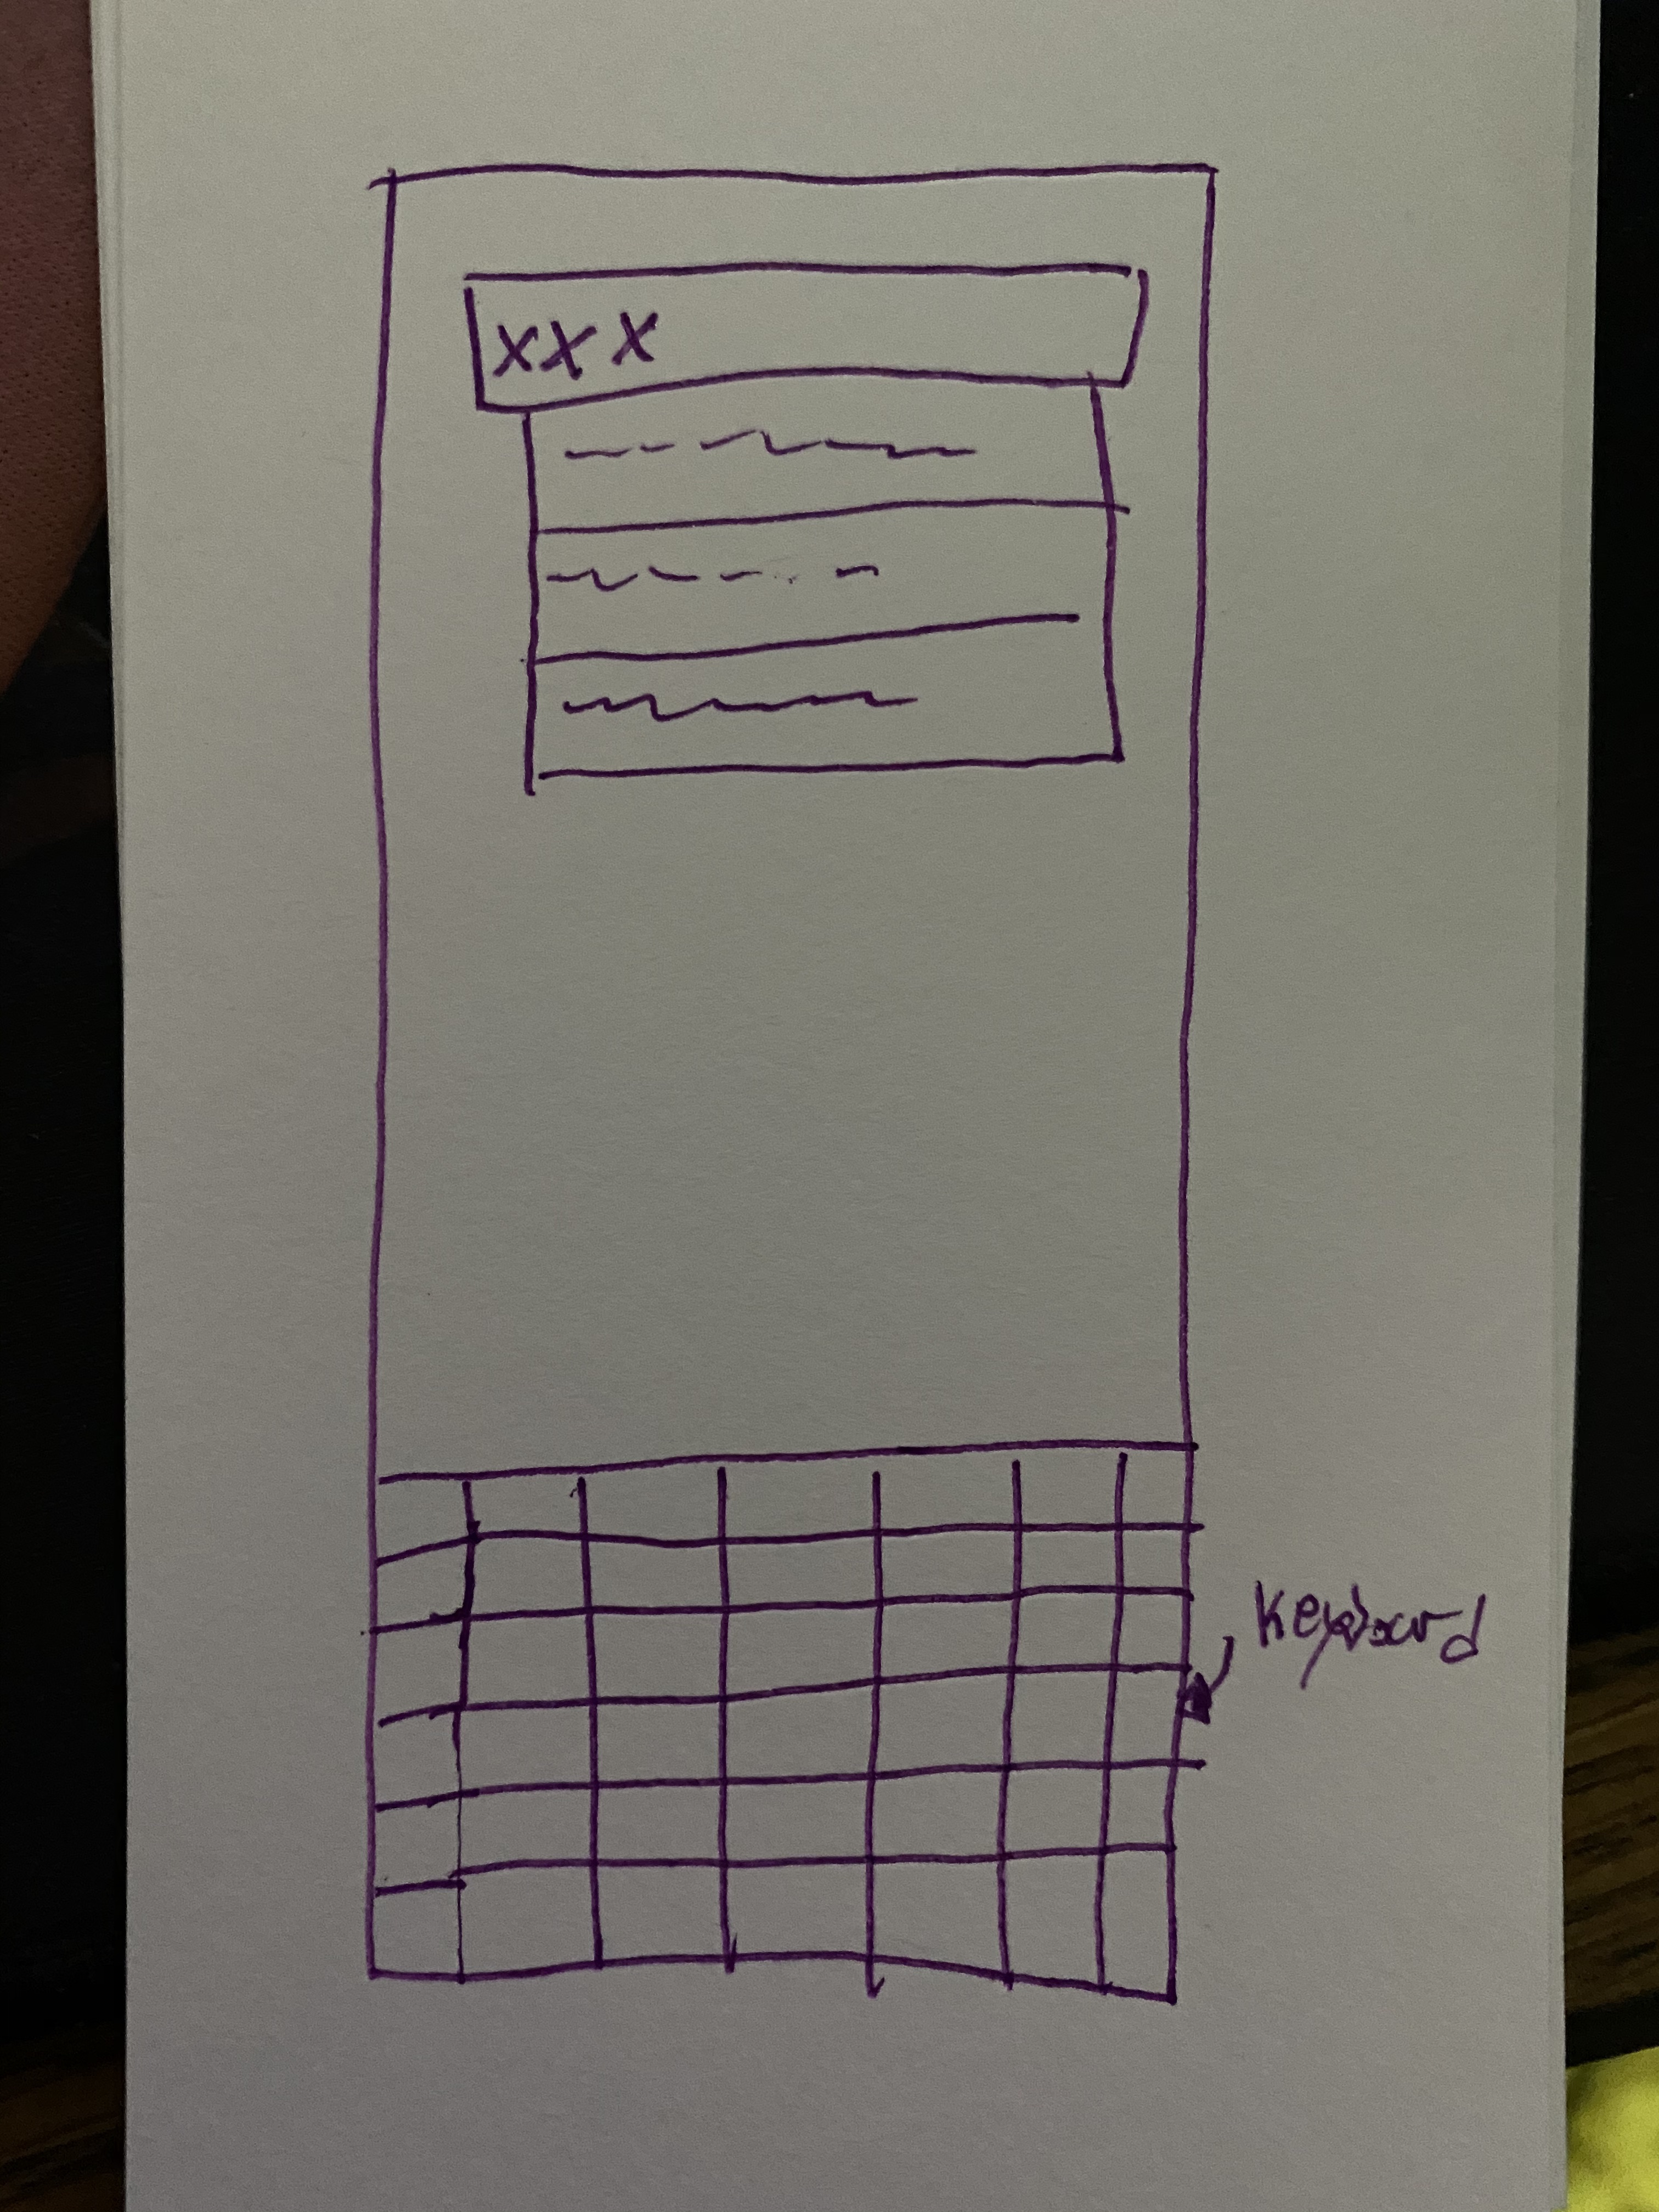 xxx
keyboard